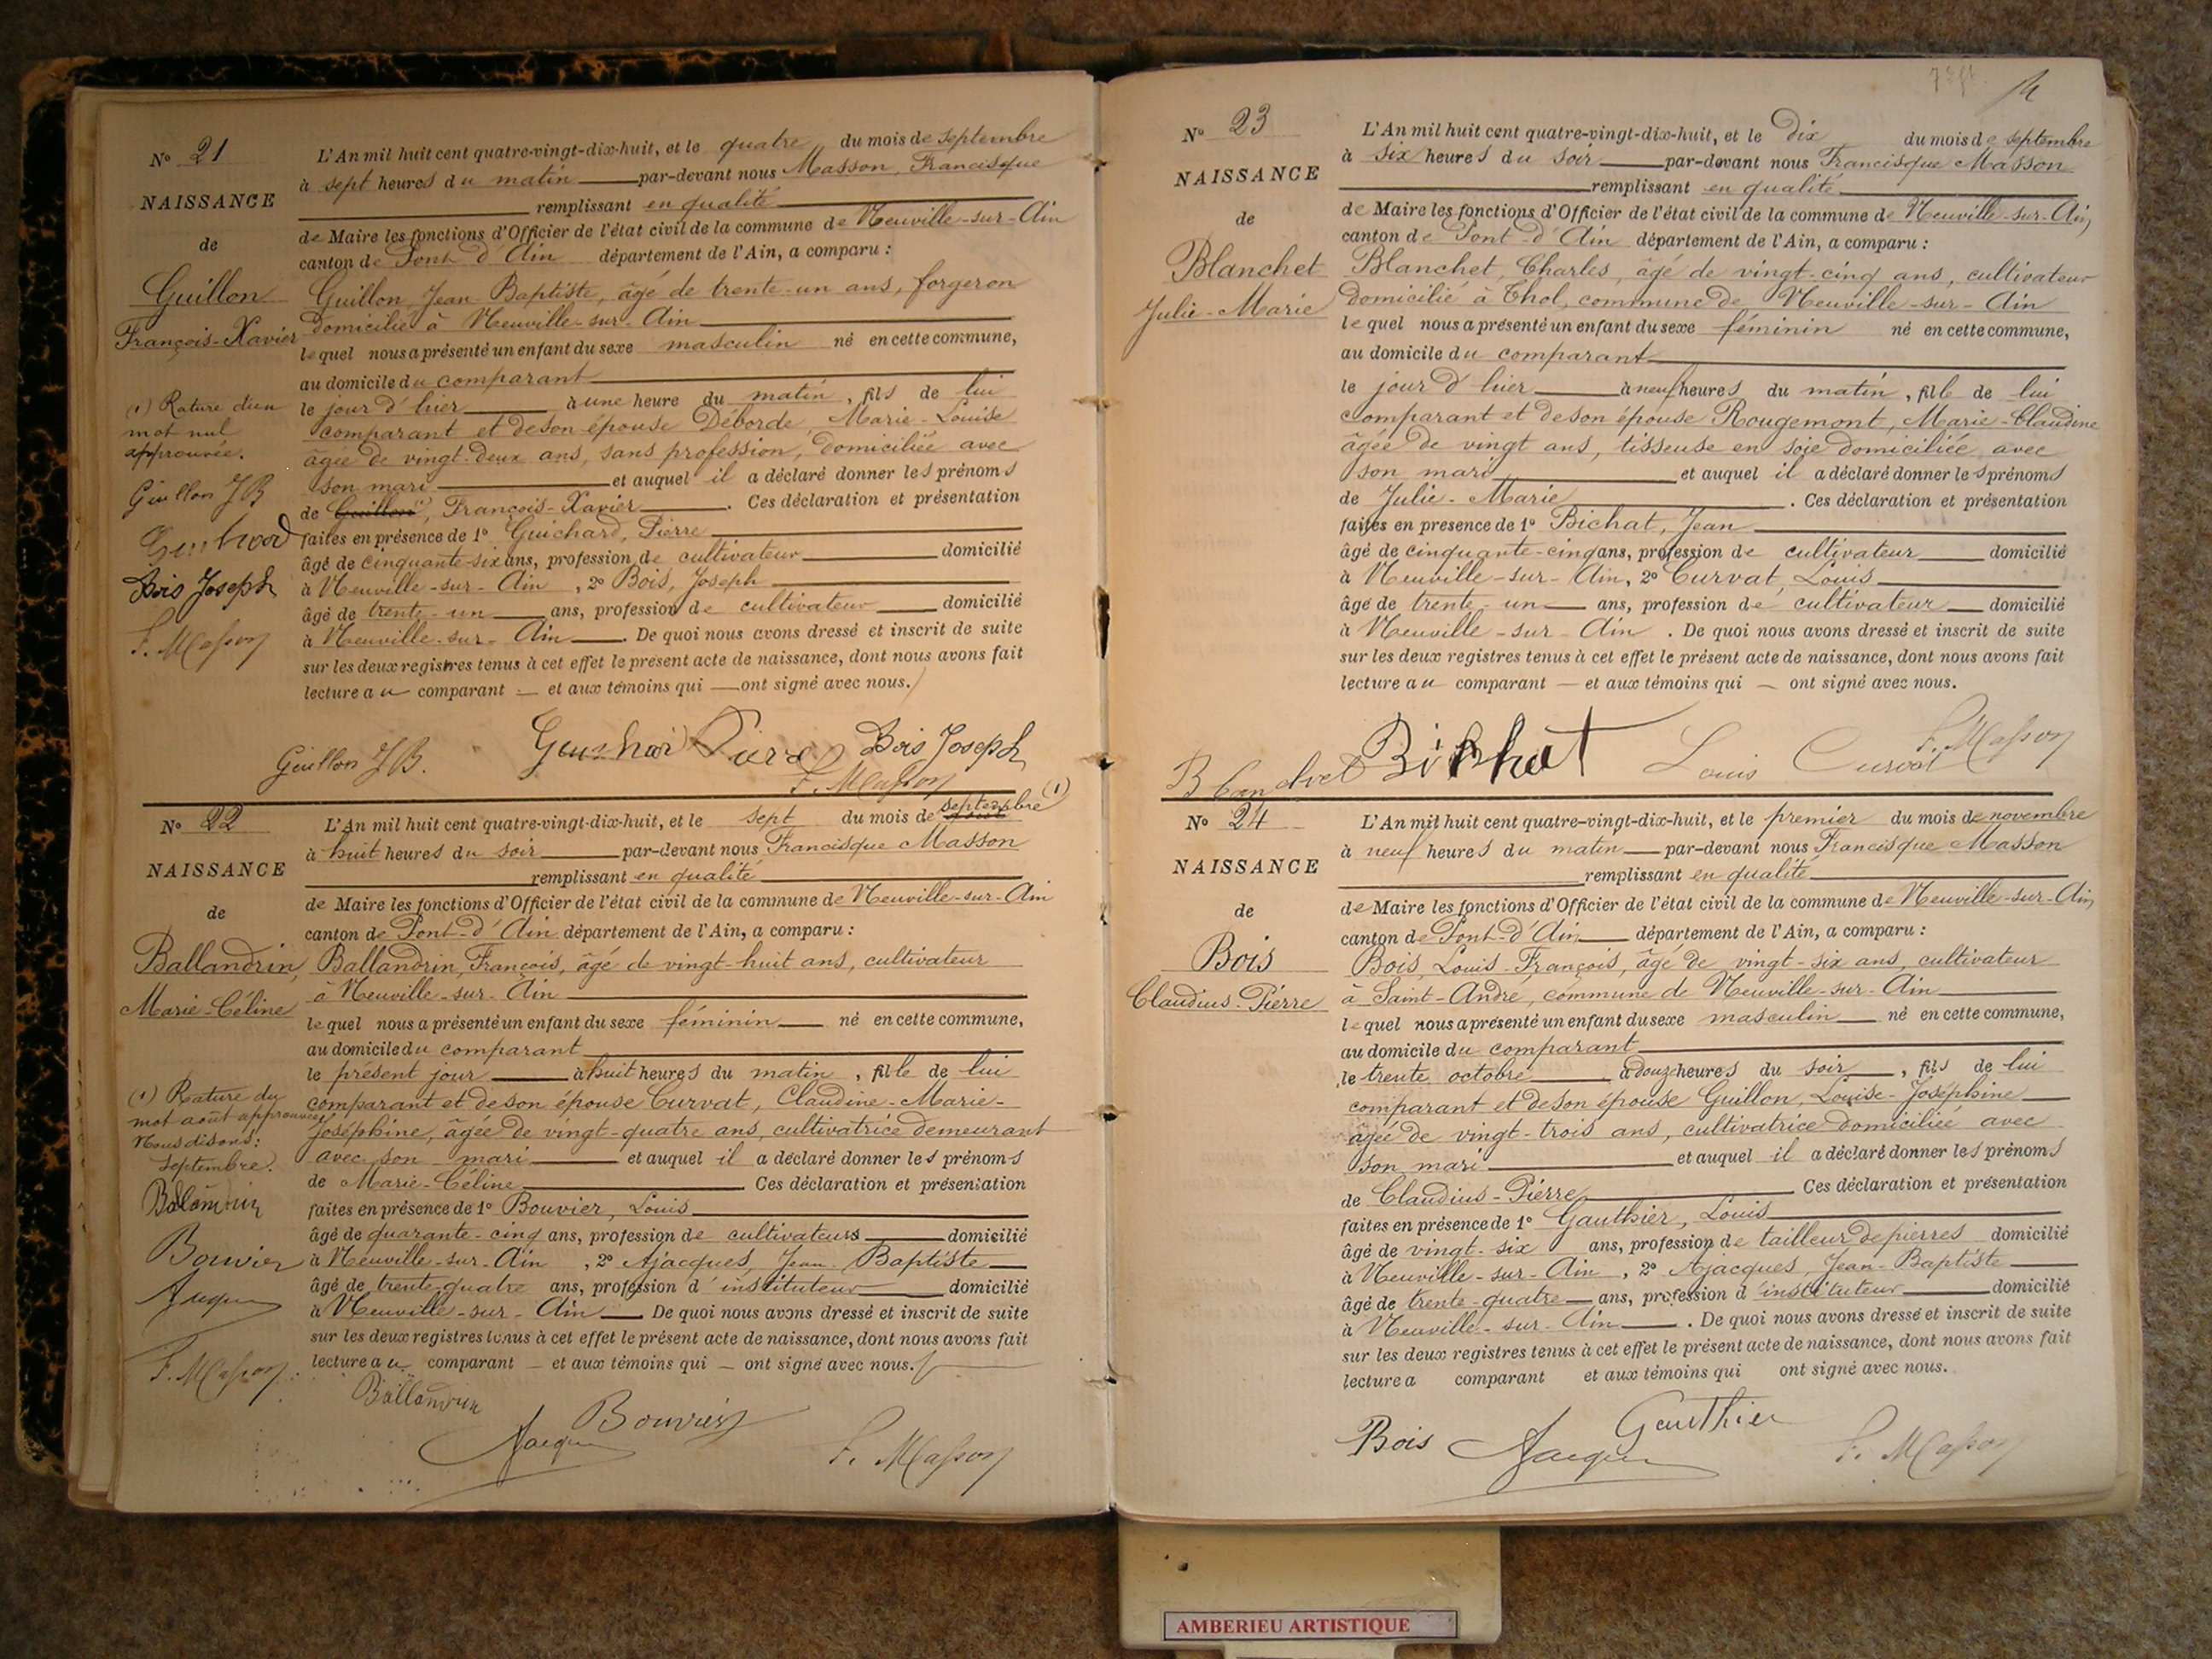 Nº 21
NAISSANCE
de
Guillon
François-Xavier
(1) Rature d'un
mot nul
approuvée.
Guillon JB
Bois Joseph
F. Masson
L'An mil huit cent quatre-vingt-dix-huit, et le quatre du mois de septembre
à sept heures du matin par-devant nous Masson, Francisque
remplissant en qualité
de Maire les fonctions d'Officier de l'état civil de la commune de Neuville-sur-Ain
canton de Pont d'Ain département de l'Ain, a comparu :
Guillon, Jean-Baptiste, âgé de trente-un ans, forgeron
domicilié à Neuville-sur-Ain
lequel nous a présenté un enfant du sexe masculin né en cette commune,
au domicile du comparant
le jour d'hier à une heure du matin, fils de lui
comparant et de son épouse Déborde, Marie-Louise
âgée de vingt-deux ans, sans profession, domiciliée avec
son mari et auquel il a déclaré donner les prénoms
de Guillon (1), François-Xavier. Ces déclaration et présentation
faites en présence de 1º Guichard, Pierre
âgé de cinquante-six ans, profession de cultivateur domicilié
à Neuville-sur-Ain, 2º Bois, Joseph
âgé de trente-un ans, profession de cultivateur domicilié
à Neuville-sur-Ain. De quoi nous avons dressé et inscrit de suite
sur les deux registres tenus à cet effet le présent acte de naissance, dont nous avons fait
lecture au comparant — et aux témoins qui — ont signé avec nous.
Guillon JB. Guichard Pierre Bois Joseph
F. Masson
Nº 22
NAISSANCE
de
Ballandrin,
Marie-Céline
(1) Rature du
mot août approuvée
Nous disons:
septembre.
Ballandrin
Bouvier
F. Masson
septembre (1)
L'An mil huit cent quatre-vingt-dix-huit, et le sept du mois de août
à huit heures du soir par-devant nous Francisque Masson
remplissant en qualité
de Maire les fonctions d'Officier de l'état civil de la commune de Neuville-sur-Ain
canton de Pont-d'Ain département de l'Ain, a comparu :
Ballandrin, François, âgé de vingt-huit ans, cultivateur
à Neuville-sur-Ain
lequel nous a présenté un enfant du sexe féminin né en cette commune,
au domicile du comparant
le présent jour à huit heures du matin, fille de lui
comparant et de son épouse Curvat, Claudine-Marie-
Joséphine, âgée de vingt-quatre ans, cultivatrice demeurant
avec son mari et auquel il a déclaré donner les prénoms
de Marie-Céline Ces déclaration et présentation
faites en présence de 1º Bouvier, Louis
âgé de quarante-cinq ans, profession de cultivateurs domicilié
à Neuville-sur-Ain, 2º Ajacques, Jean Baptiste
âgé de trente-quatre ans, profession d'instituteur domicilié
à Neuville-sur-Ain De quoi nous avons dressé et inscrit de suite
sur les deux registres tenus à cet effet le présent acte de naissance, dont nous avons fait
lecture au comparant — et aux témoins qui — ont signé avec nous.
Ballandrin
Bouvier
F. Masson
14
Nº 23
NAISSANCE
de
Blanchet
Julie-Marie
L'An mil huit cent quatre-vingt-dix-huit, et le dix du mois de septembre
à six heures du soir par-devant nous Francisque Masson
remplissant en qualité
de Maire les fonctions d'Officier de l'état civil de la commune de Neuville-sur-Ain
canton de Pont-d'Ain département de l'Ain, a comparu :
Blanchet, Charles, âgé de vingt-cinq ans, cultivateur
domicilié à Thol, commune de Neuville-sur-Ain
lequel nous a présenté un enfant du sexe féminin né en cette commune,
au domicile du comparant
le jour d'hier à neuf heures du matin, fille de lui
comparant et de son épouse Rougemont, Marie-Claudine
âgée de vingt ans, tisseuse en soie domiciliée avec
son mari et auquel il a déclaré donner les prénoms
de Julie-Marie. Ces déclaration et présentation
faites en présence de 1º Bichat, Jean
âgé de cinquante-cinq ans, profession de cultivateur domicilié
à Neuville-sur-Ain, 2º Curvat, Louis
âgé de trente-un ans, profession de cultivateur domicilié
à Neuville-sur-Ain. De quoi nous avons dressé et inscrit de suite
sur les deux registres tenus à cet effet le présent acte de naissance, dont nous avons fait
lecture au comparant — et aux témoins qui — ont signé avec nous.
Blanchet Bichat Louis Curvat F. Masson
Nº 24
NAISSANCE
de
Bois
Claudius-Pierre
L'An mil huit cent quatre-vingt-dix-huit, et le premier du mois de novembre
à neuf heures du matin par-devant nous Francisque Masson
remplissant en qualité
de Maire les fonctions d'Officier de l'état civil de la commune de Neuville-sur-Ain
canton de Pont-d'Ain département de l'Ain, a comparu :
Bois, Louis-François, âgé de vingt-six ans, cultivateur
à Saint-André, commune de Neuville-sur-Ain
lequel nous a présenté un enfant du sexe masculin né en cette commune,
au domicile du comparant
le trente octobre à douze heures du soir, fils de lui
comparant et de son épouse Guillon, Louise-Joséphine
âgée de vingt-trois ans, cultivatrice domiciliée avec
son mari et auquel il a déclaré donner les prénoms
de Claudius-Pierre Ces déclaration et présentation
faites en présence de 1º Gauthier, Louis
âgé de vingt-six ans, profession de tailleur de pierres domicilié
à Neuville-sur-Ain, 2º Ajacques, Jean-Baptiste
âgé de trente-quatre ans, profession d'instituteur domicilié
à Neuville-sur-Ain. De quoi nous avons dressé et inscrit de suite
sur les deux registres tenus à cet effet le présent acte de naissance, dont nous avons fait
lecture a comparant et aux témoins qui ont signé avec nous.
Bois Gauthier F. Masson
AMBERIEU ARTISTIQUE